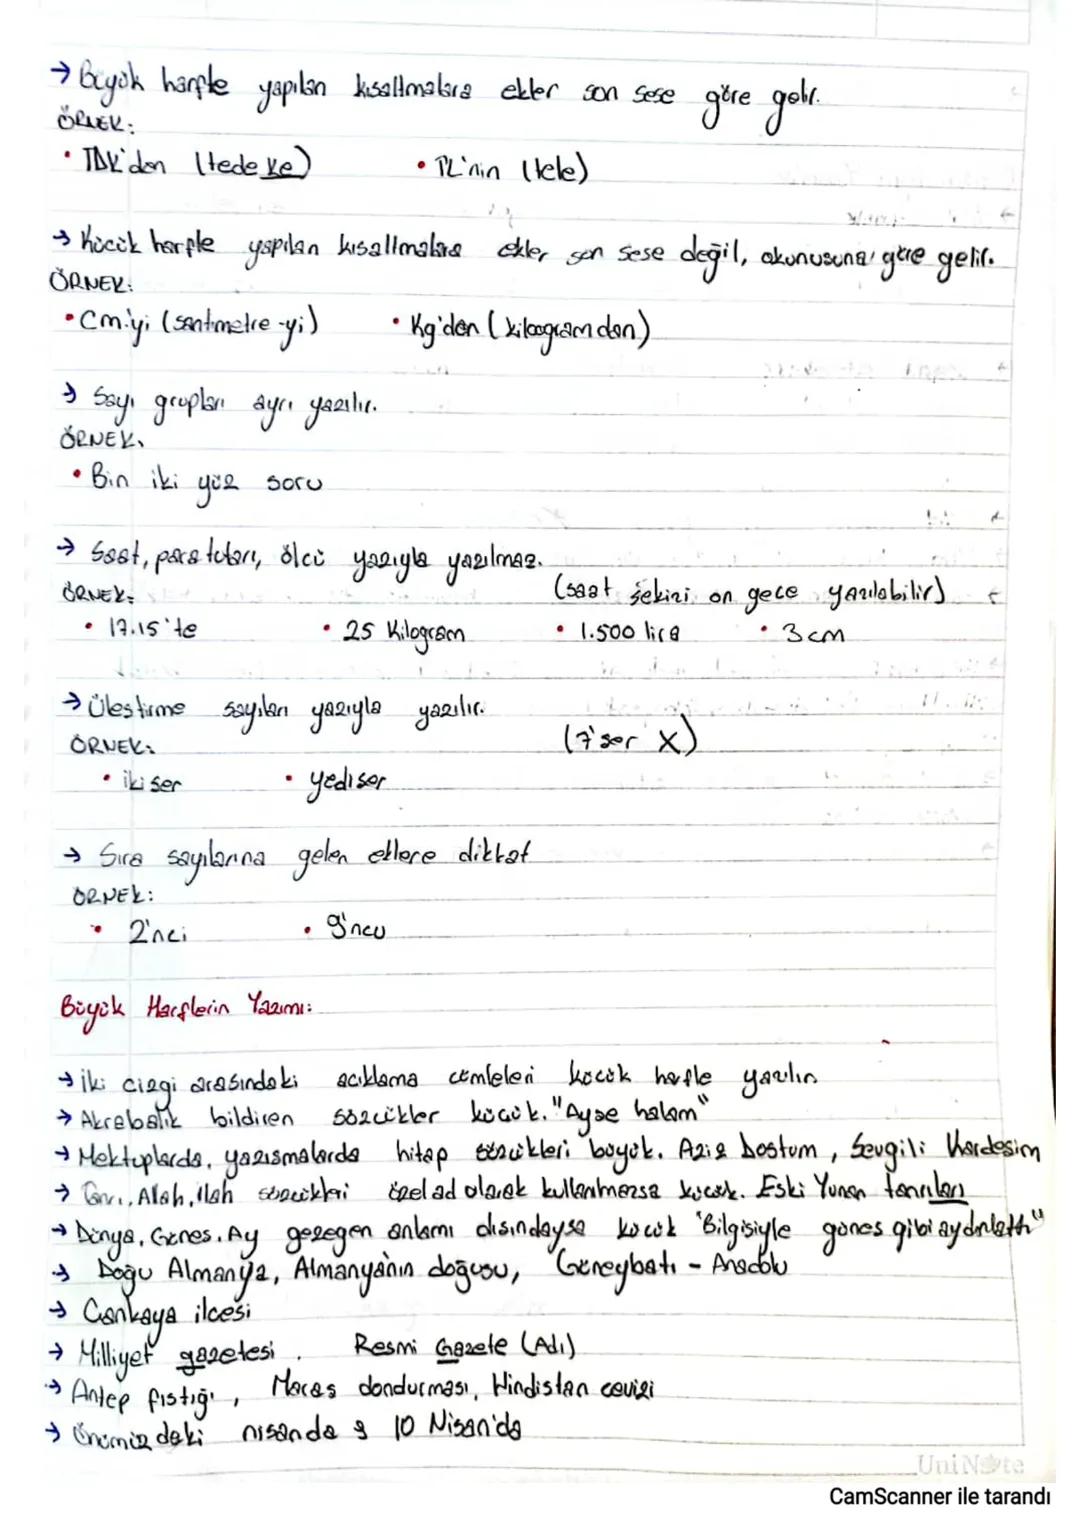 → Büyük harfle yapılan kısaltmalara ekler son sese göre gelir.
ÖRNEK:
• TDK'den (tedeke) • TL'nin (tele)
→ Küçük harfle yapılan kısaltmalara ekler son sese değil, okunuşuna göre gelir.
ÖRNEK:
• Cm'yi (santimetre-yi) • Kg'dan (kilogramdan)
→ Sayı grupları ayrı yazılır.
ÖRNEK:
• Bin iki yüz soru
→ Saat, para tutarı, ölçü yazıyla yazılmaz.
ÖRNEK: (saat sekizi on gece yazılabilir)
• 17.15'te • 25 Kilogram • 1.500 lira • 3 cm
→ Üleştirme sayıları yazıyla yazılır.
ÖRNEK: (7'şer X)
• ikişer • yedişer
→ Sıra sayılarına gelen eklere dikkat
ÖRNEK:
• 2'nci • 9'ncu
Büyük Harflerin Yazımı:
→ İki çizgi arasındaki açıklama cümleleri küçük harfle yazılır.
→ Akrabalık bildiren sözcükler küçük. "Ayşe halam"
→ Mektuplarda, yazışmalarda hitap sözcükleri büyük. Aziz Dostum, Sevgili Kardeşim
→ Tanrı, Allah, ilah sözcükleri özel ad olarak kullanılmazsa küçük. Eski Yunan tanrıları
→ Dünya, Güneş, Ay gezegen anlamı dışındaysa küçük "Bilgisiyle güneş gibi aydınlattı"
→ Doğu Almanya, Almanya'nın doğusu, Güneybatı - Anadolu
→ Çankaya ilçesi
→ Milliyet gazetesi. Resmi Gazete (Adı)
→ Antep fıstığı, Maraş dondurması, Hindistan cevizi
→ Önümüzdeki nisanda 10 Nisan'da
UniNote
CamScanner ile tarandı